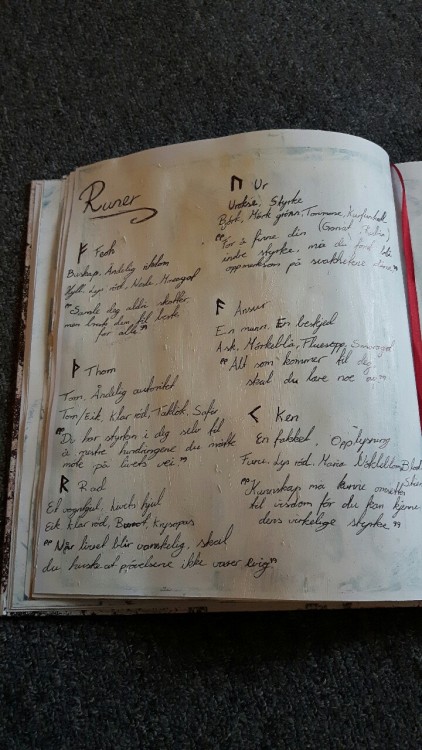 Runer
ᚠ Feoh
Buskap, Åndelig rikdom
Hyll, Lys rød, Nesle, Moseagat
"Samle deg aldri skatter,
men bruk dem til beste
for alle"
ᚦ Thorn
Torn, Åndelig autoritet
Torn/Eik, Klar rød, Taklök, Safir
"Du har styrken i deg selv til
å mestre hindringene du måtte
møte på livets vei."
ᚱ Rad
Et vognhjul, Livets hjul
Eik, Klar rød, Krysopas
"Når livet blir vanskelig, skal
du huske at prøvelsene ikke varer evig"
ᚢ Ur
Urokse, Styrke
Bjørk, Mørk grønn,
"For å finne din
indre styrke, må du først bli
oppmerksom på svakhetene dine"
ᚨ Ansur
En munn, En beskjed
Ask, Mørkeblå, Fluesopp, Smaragd
"Alt som kommer til deg
skal du lære noe av"
ᚲ Ken
En fakkel, Opplysning
Furu, Lys rød, Maria
"Kunnskap må kunne omsettes
til visdom før du kan kjenne
dens virkelige styrke"